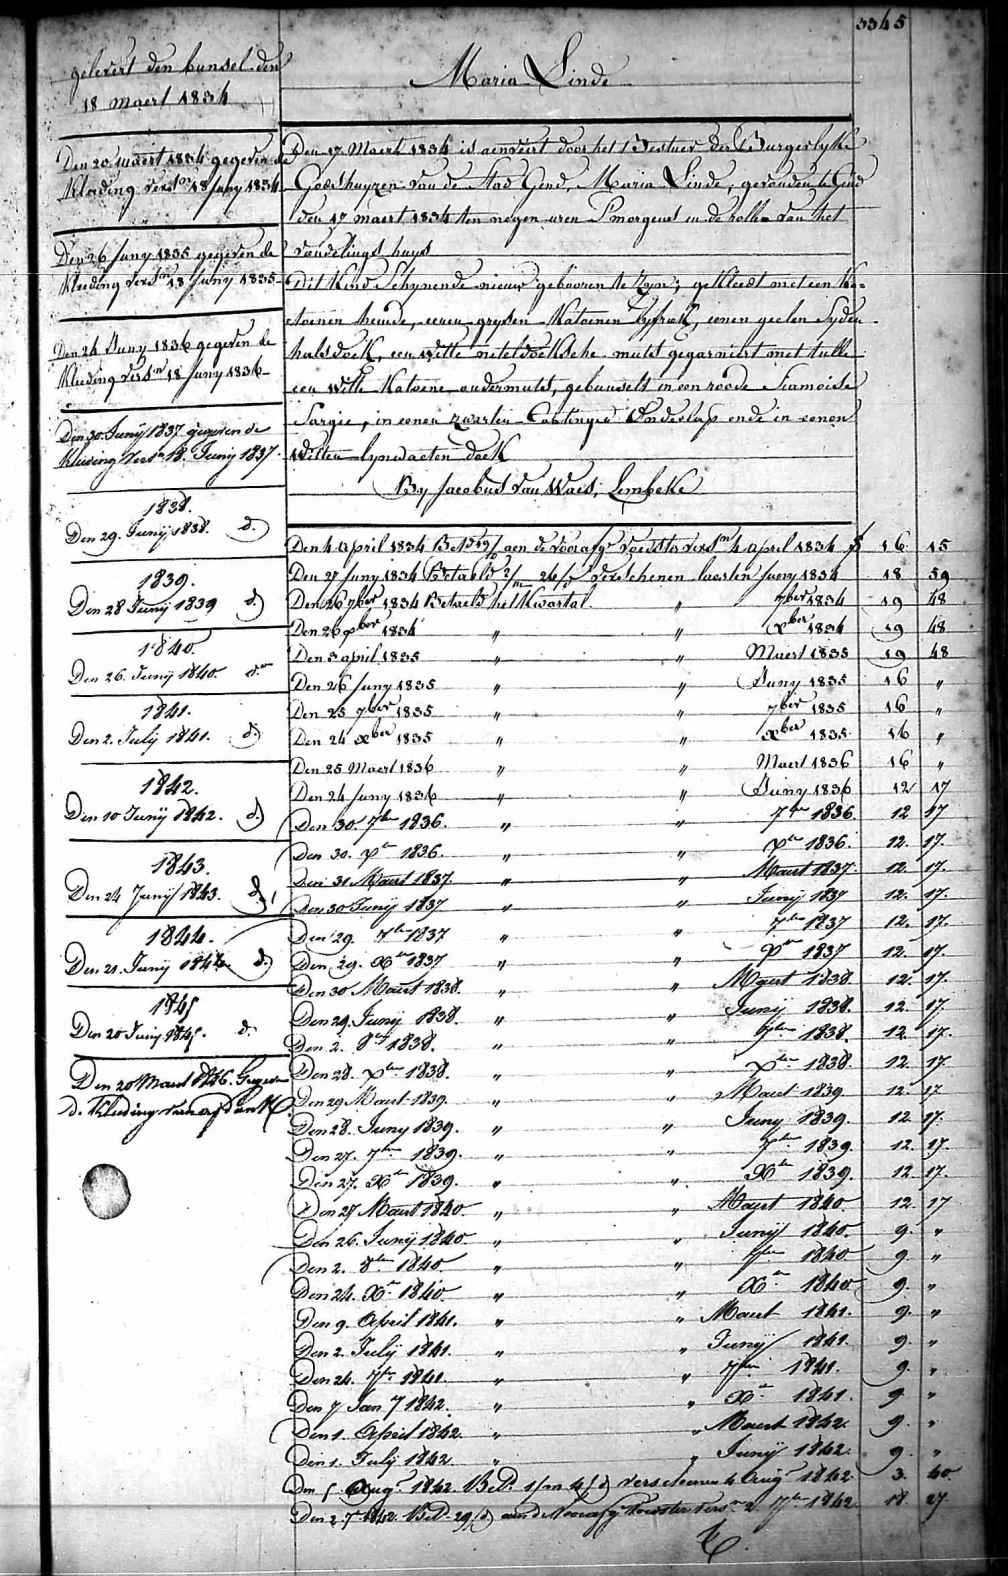 3345
gelevert den bunsel den
18 maert 1834
Maria Linde
Den 20 maert 1834 gegeven de
kleeding versn 18 Juny 1834
Den 26 Juny 1835 gegeven de
kleeding versn 18 Juny 1835
Den 24 Juny 1836 gegeven de
kleeding versn 18 Juny 1836
Den 30. Junij 1837 gegeven de
kleeding versn 18. Junij 1837.
1838.
Den 29. Junij 1838. d.
1839.
Den 28 Junij 1839 d.
1840.
Den 26. Junij 1840. d.
1841.
Den 2. Julij 1841. d.
1842.
Den 10 Junij 1842. d.
1843.
Den 24 Junij 1843. d.
1844.
Den 21. Junij 1844. d.
1845
Den 20 Junij 1845. d.
Den 20 Maert 1846. Gegeven
de kleeding van
Den 17 Maert 1834 is aenveert door het Bestuer der Burgerlyke
Godshuyzen van de Stad Gend, Maria Linde, gevonden te Gend
den 17 maert 1834 ten negen uren s'morgens in de rolle van het
vondelings huys
Dit kind Schynende nieuw gebooren te zyn; gekleedt met een ka-
toenen hemde, eenen grysen katoenen lyfrok, eenen geelen Syden
halsdoek, een witte neteldoeksche muts gegarniert met tulle
een witte katoene ondermuts, gebunselt in een roode Siamoise
Sargie, in eenen zwarten Voorslap ende in eenen
witten lynwaeten doek
By Jacobus van Waes, Lembeke
Den 4 April 1834 aen de voorsz voedster versn 4 april 1834 f 16 15
Den 27 Juny 1834 Betaeld verschenen laesten Juny 1834 18 59
Den 26 7ber 1834 Betaeld het kwartal " 7ber 1834 19 48
Den 26 xber 1834 " " xber 1834 19 48
Den 3 april 1835 " " Maert 1835 19 48
Den 26 Juny 1835 " " Juny 1835 16 "
Den 25 7ber 1835 " " 7ber 1835 16 "
Den 24 xber 1835 " " xber 1835 16 "
Den 25 Maert 1836 " " Maert 1836 16 "
Den 24 Juny 1836 " " Juny 1836 12 17
Den 30. 7ber 1836. " " 7ber 1836. 12 17
Den 30. xber 1836. " " xber 1836. 12. 17.
Den 31 Maert 1837. " " Maert 1837. 12. 17.
Den 30 Junij 1837 " " Junij 1837 12. 17.
Den 29. 7ber 1837 " " 7ber 1837 12. 17.
Den 29. Xber 1837 " " Xber 1837 12. 17.
Den 30 Maert 1838. " " Maert 1838 12. 17.
Den 29. Junij 1838. " " Junij 1838. 12. 17.
Den 2. 8ber 1838. " " 7ber 1838. 12. 17.
Den 28. xber 1838. " " xber 1838. 12. 17.
Den 29 Maert 1839. " " Maert 1839. 12 17
Den 28. Juny 1839. " " Juny 1839. 12. 17.
Den 27. 7ber 1839. " " 7ber 1839. 12. 17.
Den 27. Xber 1839. " " Xber 1839. 12. 17.
Den 27 Maert 1840. " " Maert 1840. 12. 17
Den 26. Junij 1840. " " Junij 1840. 9. "
Den 2. 8ber 1840. " " 7ber 1840 9 "
Den 24. Xber 1840. " " Xber 1840 9. "
Den 9. April 1841. " " Maert 1841. 9. "
Den 2. Julij 1841. " " Junij 1841. 9. "
Den 24. 7ber 1841. " " 7ber 1841. 9. "
Den 7 Jan 1842. " " Xber 1841. 9 "
Den 1. April 1842. " " Maert 1842. 9. "
Den 1. July 1842. " " Junij 1842. 9. "
Den 5. Augt 1842. Bet. verschenen 4 Augt 1842 3. 40
Den 2 7ber 1842. Bet. 29/ aen de Voorsz Voedster versn 2. 7ber 1842. 18. 27